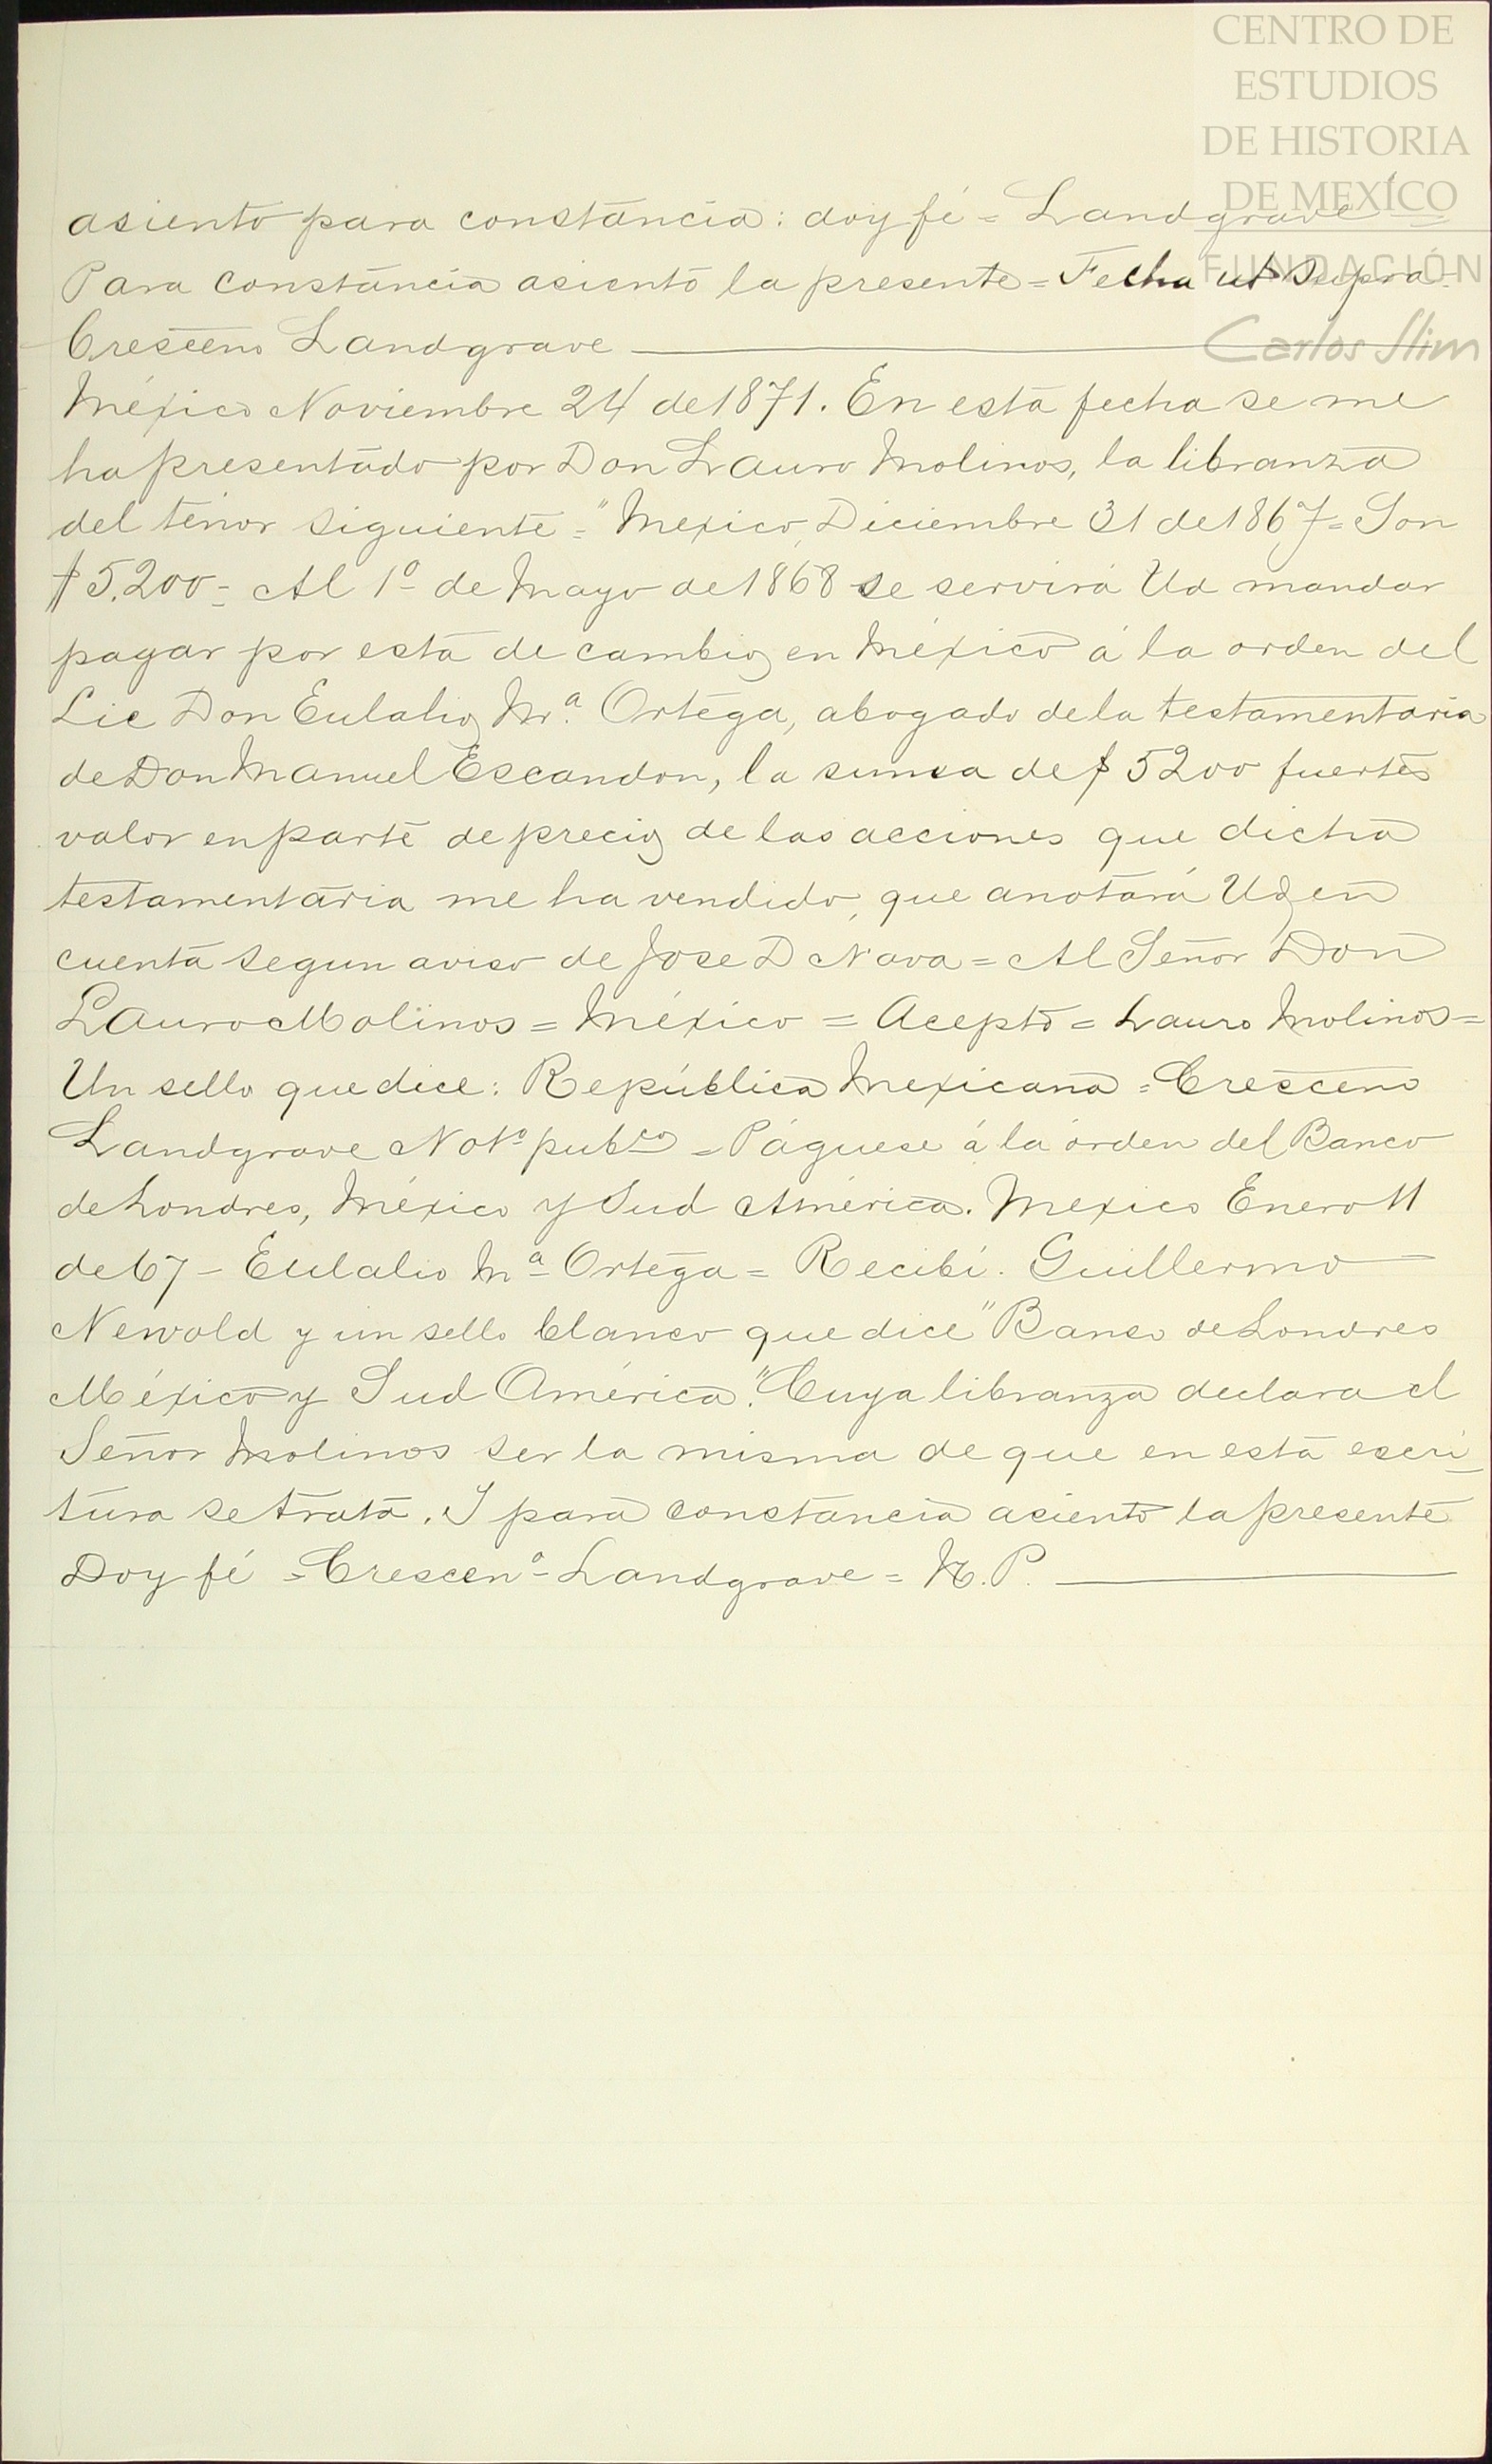 CENTRO DE
ESTUDIOS
DE HISTORIA
DE MEXÍCO
FUNDACIÓN
Carlos Slim
asiento para constancia: doy fé = Landgrave
Para constancia asiento la presente = Fecha ut supra -
Cresceno Landgrave
México Noviembre 24 de 1871. En esta fecha se me
ha presentado por Don Lauro Molinos, la libranza
del tenor siguiente = "Mexico, Diciembre 31 de 1867 = Son
$5.200 = Al 1º de Mayo de 1868 se servirá Ud mandar
pagar por esta de cambio, en México á la orden del
Lic Don Eulalio, Mª. Ortega, abogado de la testamentaria
de Don Manuel Escandon, la suma de $5200 fuertes
valor en parte de precio, de las acciones que dicha
testamentaria me ha vendido, que anotará Ud, en
cuenta segun aviso de Jose D Nava = Al Señor Don
Lauro Molinos = México = Acepto = Lauro Molinos =
Un sello que dice: República Mexicana = Cresceno
Landgrave Notº pubco = Páguese á la órden del Banco
de Londres, México y Sud América. Mexico Enero 11
de 67 - Eulalio Mª Ortega = Recibí. Guillermo
Newold y un sello blanco que dice "Banco de Londres
México y Sud América." Cuya libranza declara el
Señor Molinos ser la misma de que en esta escri
tura se trata. I para constancia asiento la presente
Doy fé = Crescenº Landgrave = N. P.